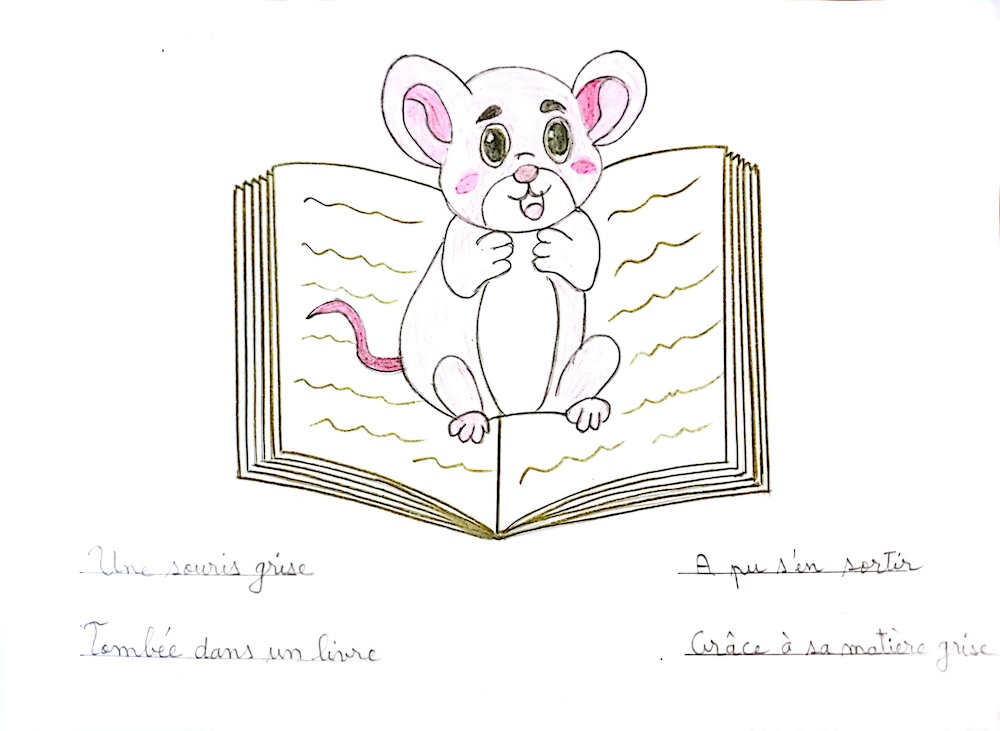 Une souris grise
Tombée dans un livre
A pu s'en sortir
Grâce à sa matière grise